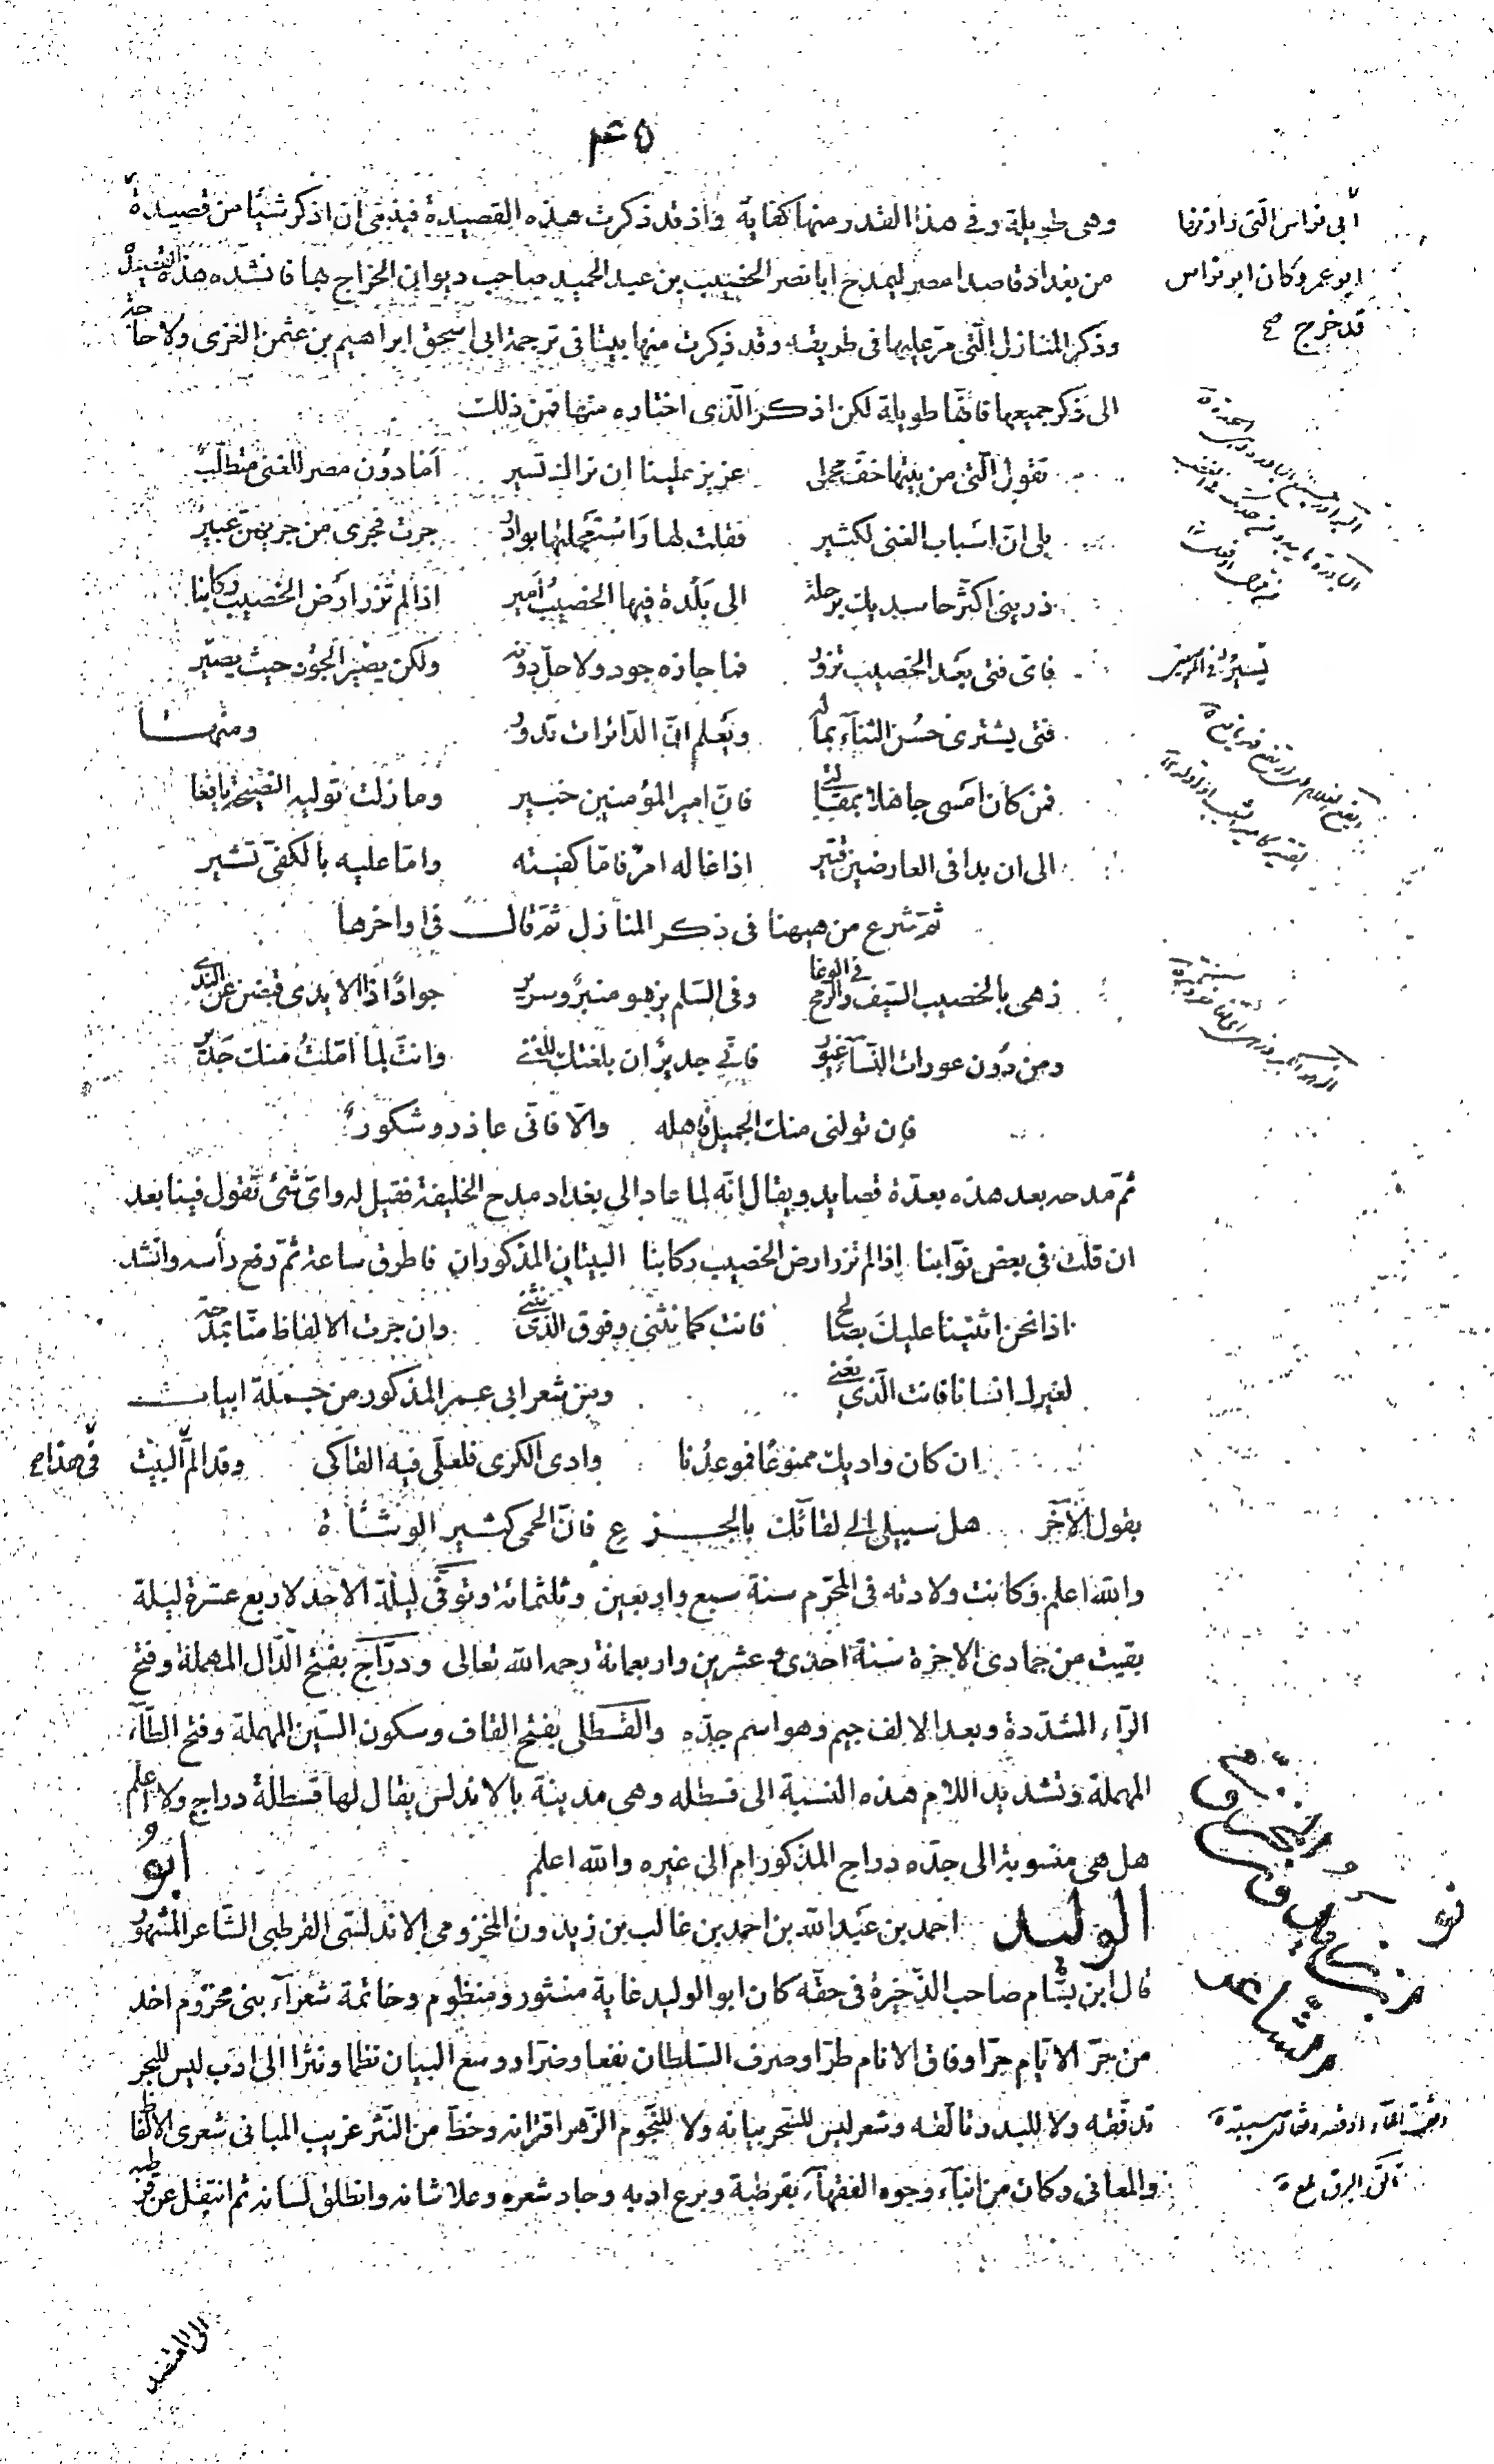 ٤٥
وهى طويلة وفى هذا القدر منها كفاية واذ قد ذكرت هذه القصيدة فينبغى ان اذكر شيئا من قصيدة
ابى نواس التى وازنها
ابو عمرو وكان ابو نواس
قد خرج صح
من بغداد قاصدا مصر ليمدح ابا نصر الخصيب بن عبد الحميد صاحب ديوان الخراج بها فانشده هذه القصيدة
وذكر المنازل التى مرّ عليها فى طريقه وقد ذكرت منها بيتا فى ترجمة ابى اسحق ابراهيم بن عثمن الغزى ولا حاجة
الى ذكر جميعها فانها طويلة لكن اذكر الذى اختاره منها فمن ذلك
تقول التى من بيتها خفّ محملى عزيز علينا ان نراك تسير اما دون مصر للغنى متطلّب
بلى انّ اسباب الغنى لكثير فقلت لها واستعجلتها بوادر جرت فجرى من جريهنّ عبير
ذرينى اكثّر حاسديك برحلة الى بلدة فيها الخصيب امير اذا لم تزر ارض الخصيب ركابنا
فاىّ فتى بعد الخصيب تزور فما جازه جود ولا حلّ دونه ولكن يصير الجود حيث يصير
فتى يشترى حسن الثنآء بماله ويعلم انّ الدّائرات تدور ومنها
فمن كان امسى جاهلا بمقالتى فانّ امير المؤمنين خبير وما زلت توليه النصيحة يافعا
الى ان بدا فى العارضين قتير اذا غاله امر فامّا كفيته وامّا عليه بالكفىّ تشير
ثمّ شرع من ههنا فى ذكر المنازل ثمّ قال فى اواخرها
زهى بالخصيب السّيف والرّمح فى الوغا وفى السّلم يزهو منبر وسرير جوادا اذا الايدى قبضن عن النّدى
ومن دون عورات النّسآء غيور فانّى جدير ان بلغتك للغنى وانت لما امّلت منك جدير
فان تولنى منك الجميل فاهله والّا فانّى عاذر وشكور
ثمّ مدحه بعد هذه بعدّة قصايد ويقال انّه لما عاد الى بغداد مدح الخليفة فقيل له واىّ شئ تقول فينا بعد
ان قلت فى بعض نوّابنا اذا لم تزر ارض الخصيب ركابنا البيتان المذكوران فاطرق ساعة ثمّ رفع رأسه وانشد
اذا نحن اثنينا عليك بصالح فانت كما نثنى وفوق الذى نثنى وان جرت الالفاظ منّا بمدحة
لغيرك انسانا فانت الّذى نعنى ومن شعر ابى عمر المذكور من جملة ابيات
ان كان واديك ممنوعا فموعدنا وادى الكرى فلعلّى فيه القاكى وقد المّ البيت فى هذا صح
بقول الآخر هل سبيل الى لقائك بالجزع فانّ الحمى كثير الوشاة
والله اعلم وكانت ولادته فى المحرّم سنة سبع واربعين وثلثمائة وتوفّى ليلة الاحد لاربع عشرة ليلة
بقيت من جمادى الاخرة سنة احدى وعشرين واربعمائة رحمه الله تعالى ودرّاج بفتح الدّال المهملة وفتح
الرّاء المشدّدة وبعد الالف جيم وهو اسم جدّه والقسطلى بفتح القاف وسكون السّين المهملة وفتح الطّآء
المهملة وتشديد اللام هذه النسبة الى قسطله وهى مدينة بالاندلس يقال لها قسطلة دراج ولا اعلم
هل هى منسوبة الى جدّه دراج المذكور ام الى غيره والله اعلم ابو
الوليد احمد بن عبد الله بن احمد بن غالب بن زيدون المخزومى الاندلسى القرطبى الشّاعر المشهور
قال ابن بسّام صاحب الذّخيرة فى حقّه كان ابو الوليد غاية منثور ومنظوم وخاتمة شعرآء بنى مخزوم اخذ
من حرّ الايّام حرّا وفاق الانام طرّا وصرف السّلطان نفعا وضرّا ووسع البيان نظما ونثرا الى ادب ليس للبحر
تدفّقه ولا للبدر تالّقه وشعر ليس للسّحر بيانه ولا للنّجوم الزّهر اقترانه وحظّ من النّثر غريب المبانى شعرى الالفاظ
والمعانى وكان من ابنآء وجوه الفقهآء بقرطبة وبرع ادبه وجاد شعره وعلا شانه وانطلق لسانه ثم انتقل عن قرطبة
الى المعتضد